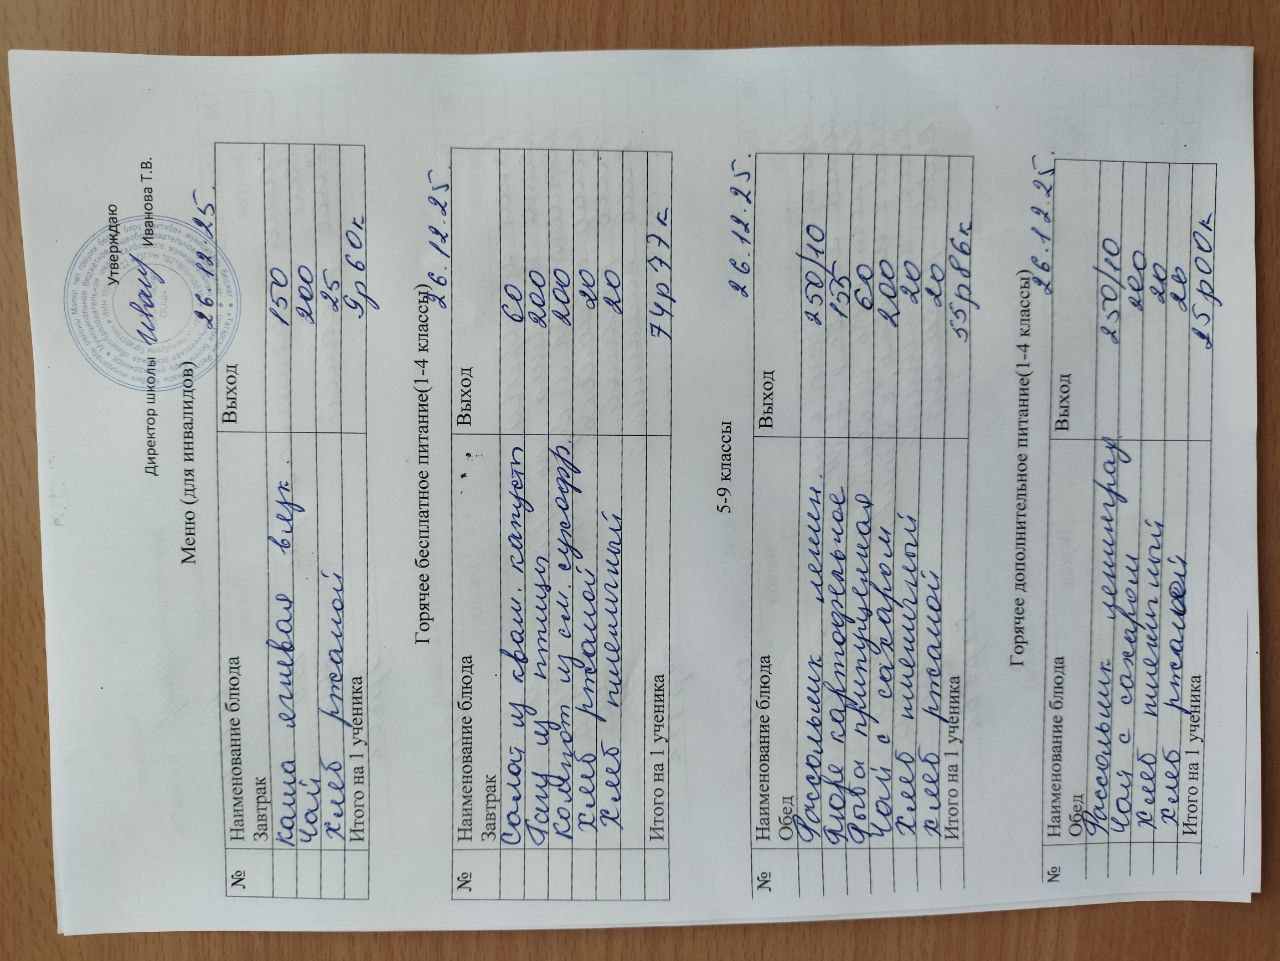 Утверждаю
Директор школы Иванова Т.В.
Меню (для инвалидов) 26.12.25.
№ Наименование блюда Выход
Завтрак
каша ячневая вязк. 150
Чай 200
Хлеб ржаной 25
Итого на 1 ученика 9р60к
Горячее бесплатное питание(1-4 классы)
26.12.25.
№ Наименование блюда Выход
Завтрак
Салат из кваш. капусты 60
Рагу из птицы 200
Компот из см. сухофр. 200
Хлеб ржаной 20
Хлеб пшеничный 20
Итого на 1 ученика 74р77к
5-9 классы 26.12.25.
№ Наименование блюда Выход
Обед
Рассольник ленин. 250/10
Пюре картофельное 155
Рыба припущенная 60
Чай с сахаром 200
Хлеб пшеничный 20
Хлеб ржаной 20
Итого на 1 ученика 55р86к
Горячее дополнительное питание(1-4 классы)
26.12.25.
№ Наименование блюда Выход
Обед
Рассольник ленинград 250/10
Чай с сахаром 200
Хлеб пшеничный 20
Хлеб ржаной 20
Итого на 1 ученика 25р00к